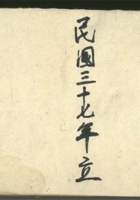 民國三十七年立